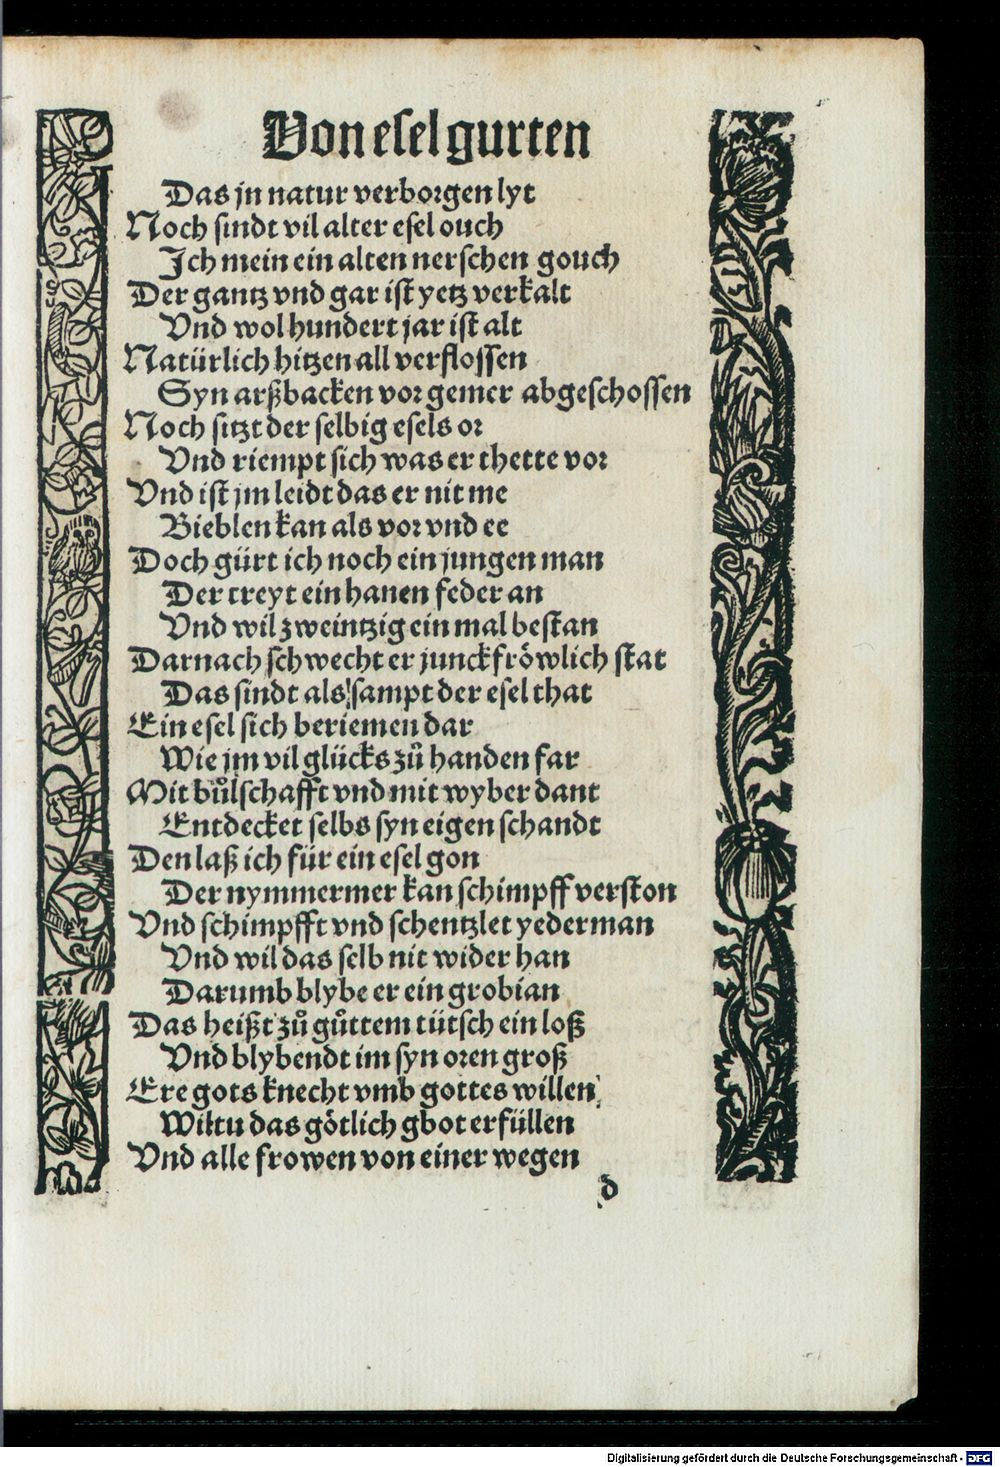 Von esel gurten
Das jn natur verborgen lyt
Noch sindt vil alter esel ouch
Ich mein ein alten nerschen gouch
Der gantz vnd gar ist yetz verkalt
Vnd wol hundert jar ist alt
Natürlich hitzen all verflossen
Syn arßbacken vor gemer abgeschossen
Noch sitzt der selbig esels or
Vnd riempt sich was er thette vor
Vnd ist jm leidt das er nit me
Bieblen kan als vor vnd ee
Doch gürt ich noch ein jungen man
Der treyt ein hanen feder an
Vnd wil zweintzig ein mal bestan
Darnach schwecht er junckfröwlich stat
Das sindt als sampt der esel that
Ein esel sich beriemen dar
Wie jm vil glücks zů handen far
Mit bůlschafft vnd mit wyber dant
Entdecket selbs syn eigen schandt
Den laß ich für ein esel gon
Der nymmermer kan schimpff verston
Vnd schimpfft vnd schentzlet yederman
Vnd wil das selb nit wider han
Darumb blybe er ein grobian
Das heißt zů gůttem tütsch ein loß
Vnd blybendt im syn oren groß
Ere gots knecht vmb gottes willen
Wiltu das götlich gbot erfüllen
Vnd alle frowen von einer wegen
d
Digitalisierung gefördert durch die Deutsche Forschungsgemeinschaft - DFG